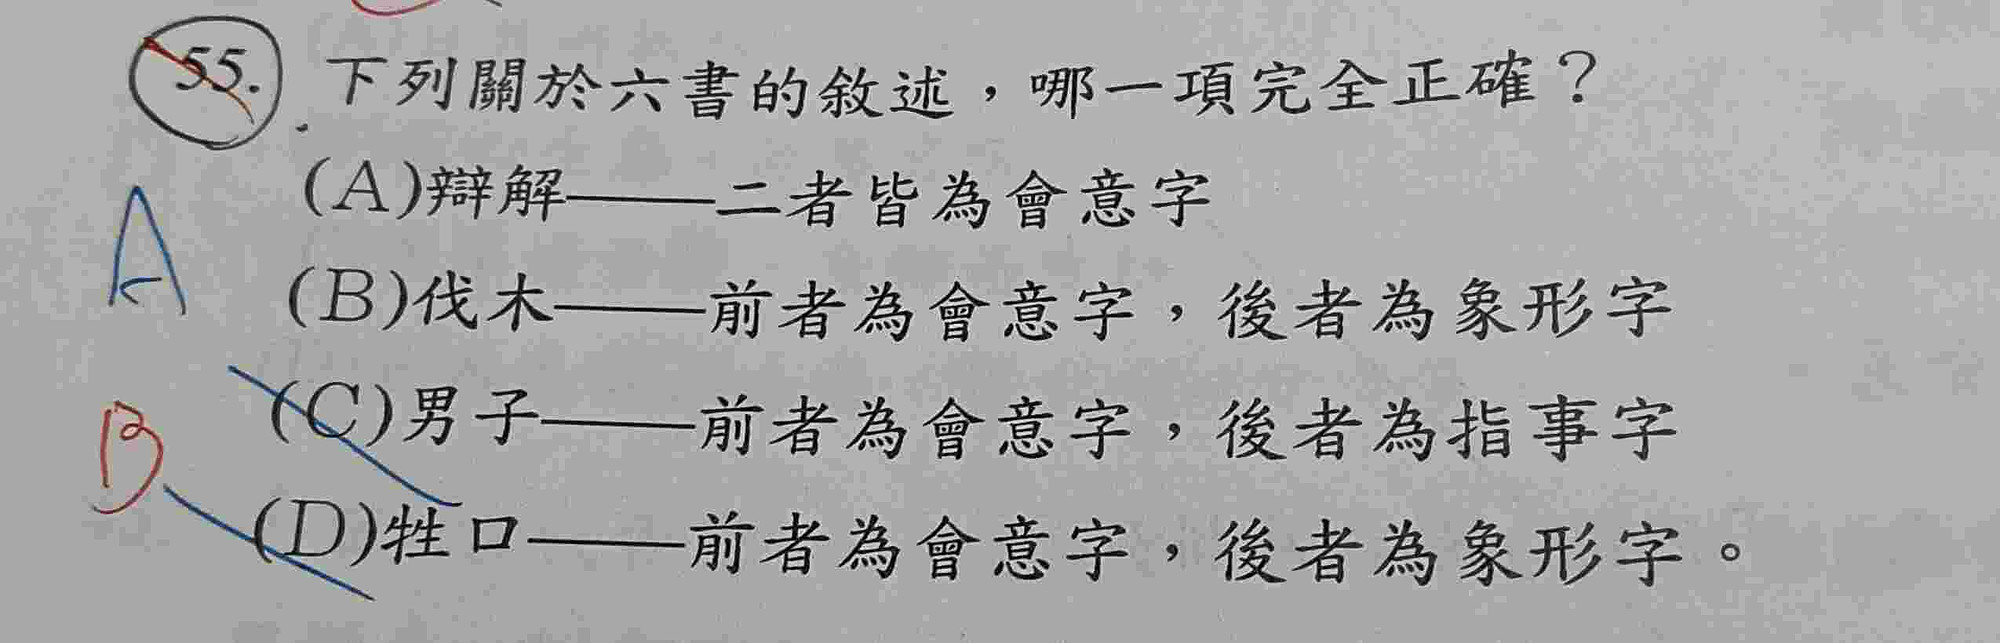 55. 下列關於六書的敘述，哪一項完全正確？
(A)辯解——二者皆為會意字
A
(B)伐木——前者為會意字，後者為象形字
(C)男子——前者為會意字，後者為指事字
B
(D)牲口——前者為會意字，後者為象形字。